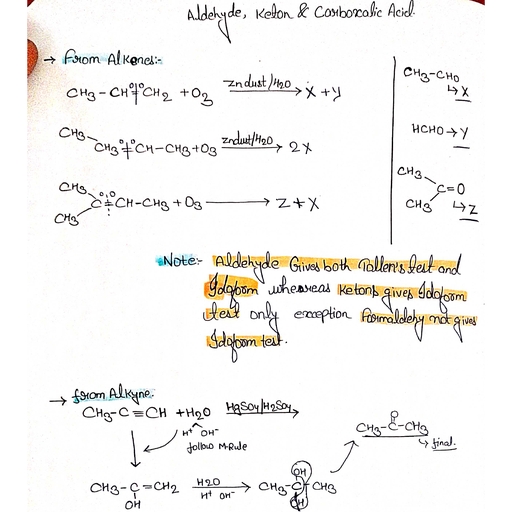 Aldehyde, Keton & Carboxcalic Acid.
→ from Alkenes:-
CH3-CH=CH2 +O3 zndust/H2O → X + Y
CH3-CH=CH-CH3+O3 zndust/H2O → 2X
CH3
C=CH-CH3 + O3 → Z + X
CH3
CH3-CHO
↳ X
HCHO → Y
CH3
C=O
CH3 ↳ Z
Note:- Aldehyde Gives both Tallen's test and
Idoform wheareas Ketons gives Idoform
test only exception Formaldehy not gives
Idoform test.
→ from Alkyne:-
CH3-C≡CH +H2O HgSO4/H2SO4 →
H+ OH-
follow M-Rule
CH3-C=CH2 H2O → CH3-C-CH3
OH H+ OH- OH
OH
O
CH3-C-CH3
↳ final.